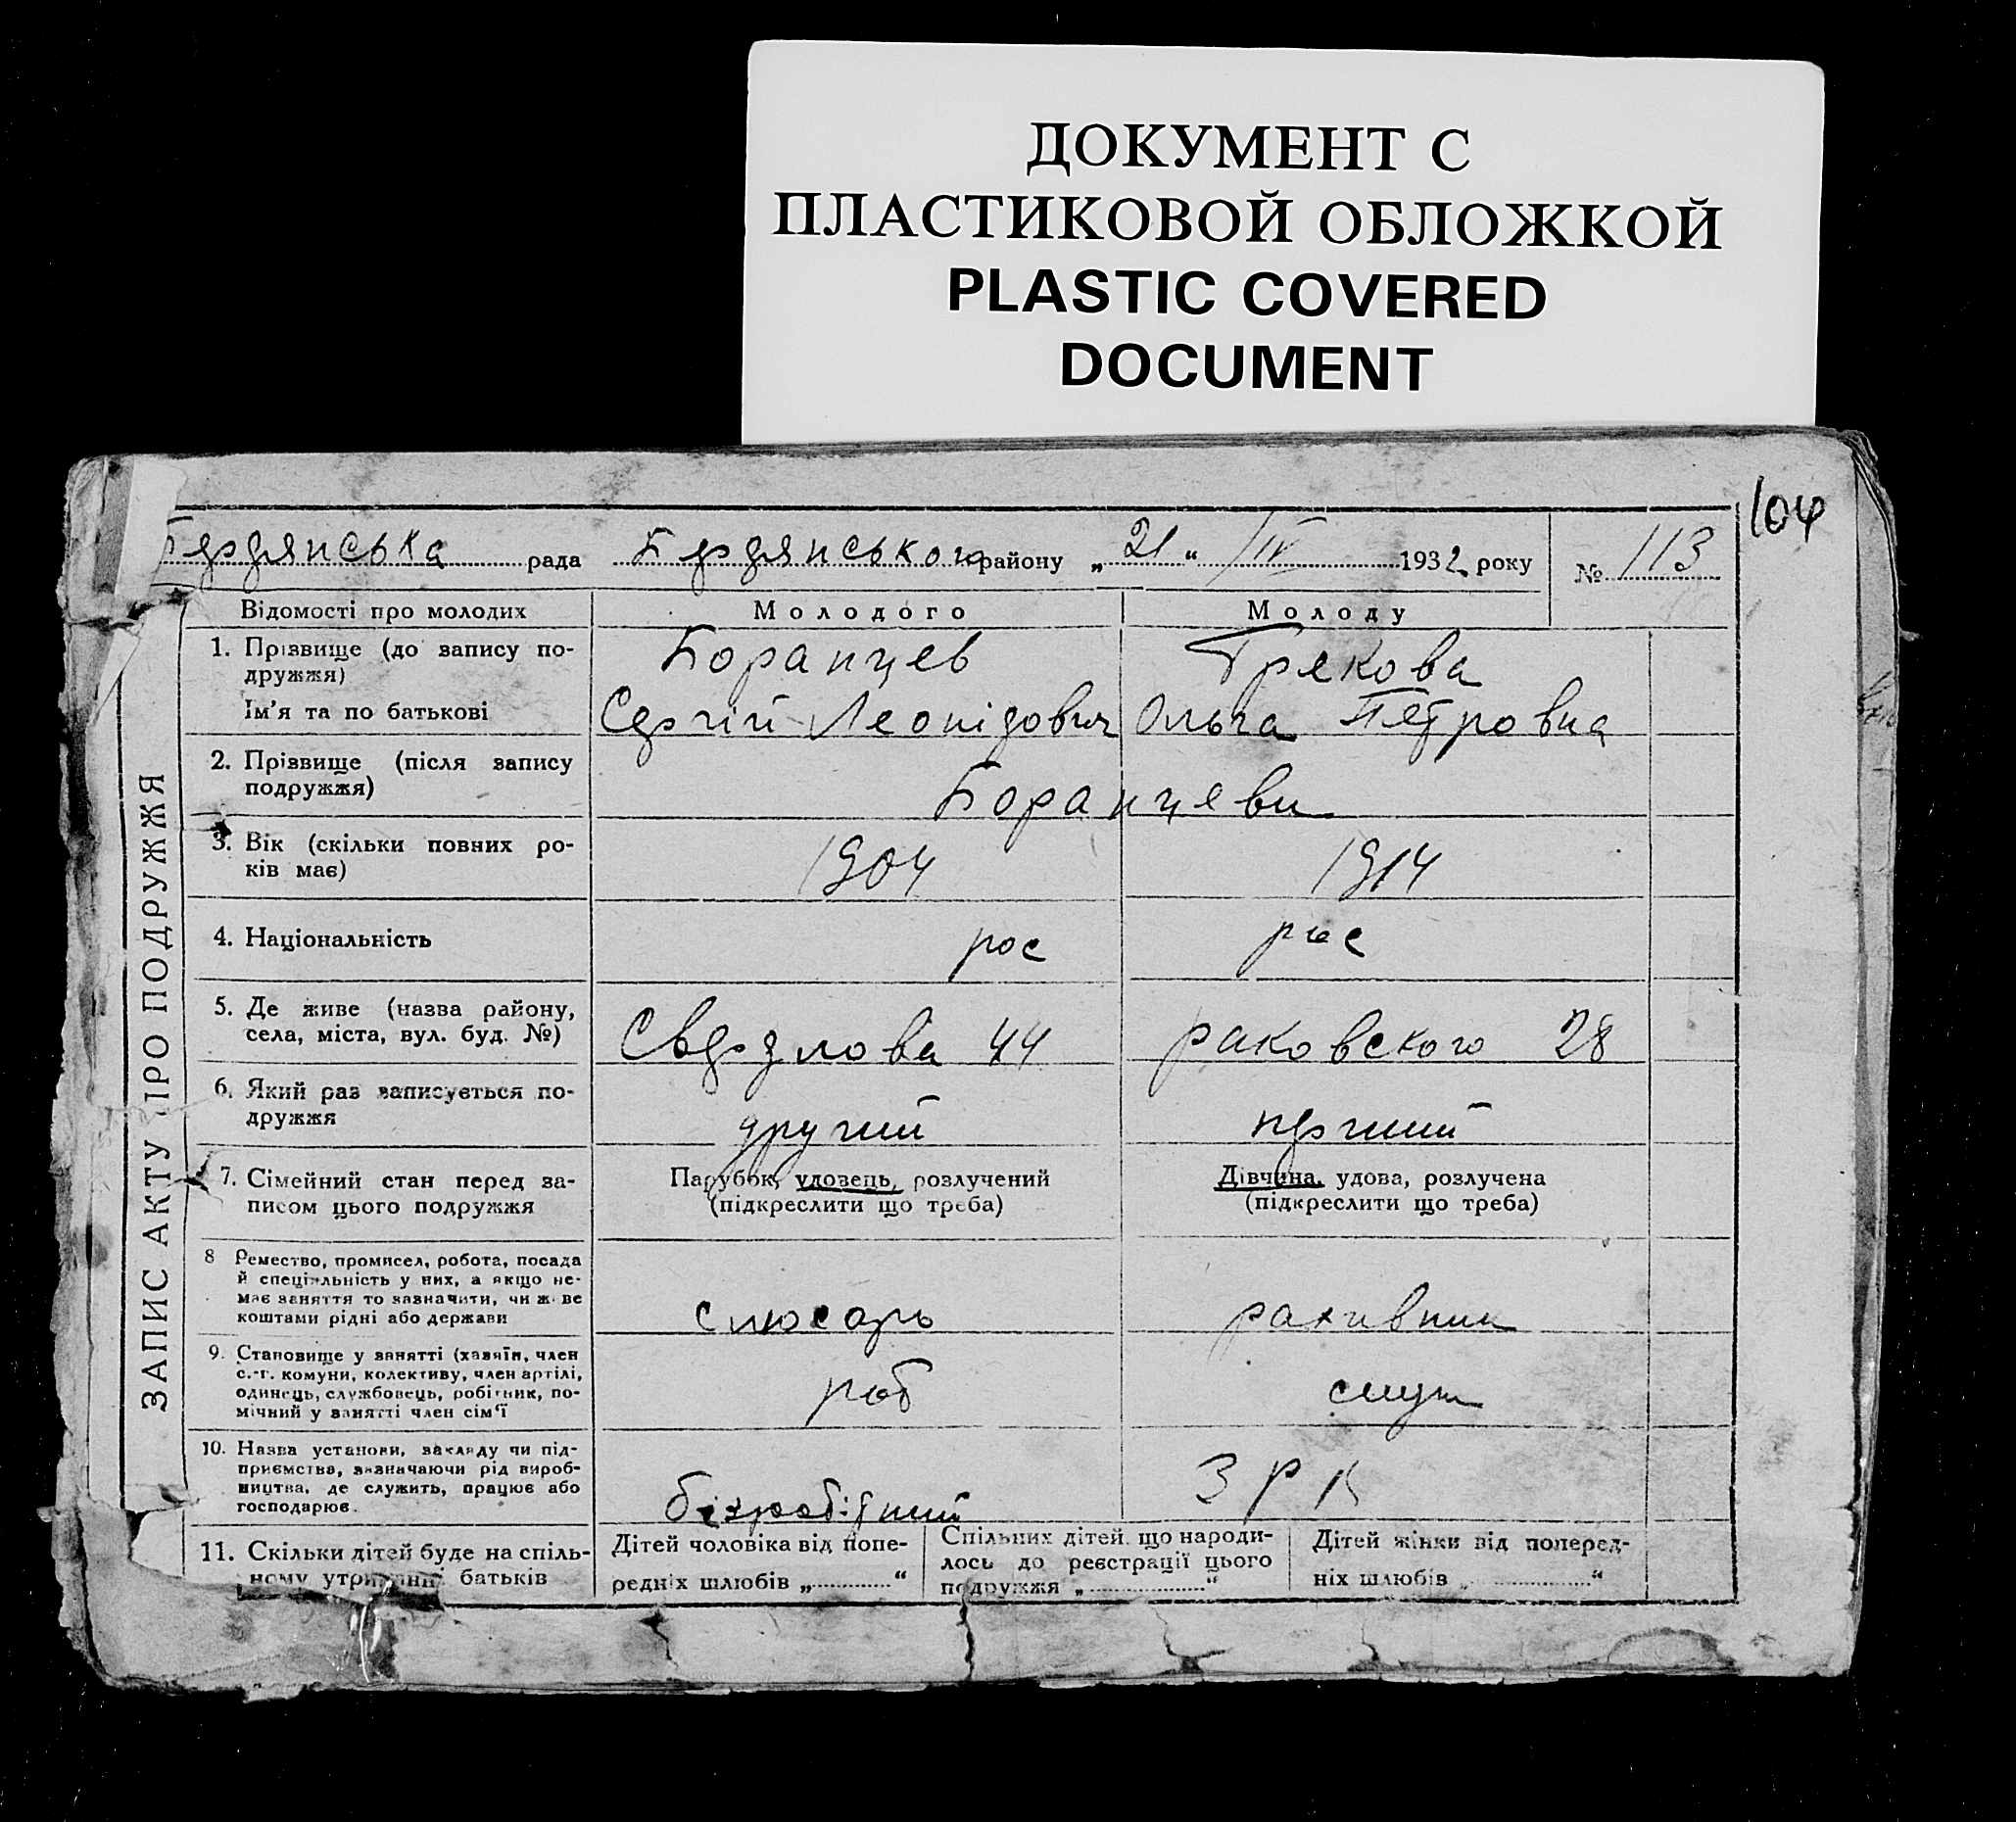 ДОКУМЕНТ С
ПЛАСТИКОВОЙ ОБЛОЖКОЙ
PLASTIC COVERED
DOCUMENT
104
Бердянська рада Бердянського району „21“ IV 1932 року № 113
ЗАПИС АКТУ ПРО ПОДРУЖЖЯ
Відомості про молодих Молодого Молоду
1. Прізвище (до запису по- Боранцев Грекова
дружжя)
Ім'я та по батькові Сергій Леонідович Ольга Петровна
2. Прізвище (після запису
подружжя) Боранцеви
3. Вік (скільки повних ро-
ків має) 1904 1914
4. Національність рос рос
5. Де живе (назва району,
села, міста, вул. буд. №) Свердлова 44 раковского 28
6. Який раз записується по-
дружжя другий перший
7. Сімейний стан перед за- Парубок, удовець, розлучений Дівчина, удова, розлучена
писом цього подружжя (підкреслити що треба) (підкреслити що треба)
8 Ремество, промисел, робота, посада
й спеціяльність у них, а якщо не-
має заняття то зазначити, чи живе
коштами рідні або держави слюсарь рахивник
9. Становище у занятті (хазяїн, член
с.-г. комуни, колективу, член артілі,
одинець, службовець, робітник, по- роб служ
мічний у занятті член сім'ї
10. Назва установи, закладу чи під-
приємства, зазначаючи рід вироб-
ництва, де служить, працює або ЗРК
господарює. безробідний
11. Скільки дітей буде на спіль- Дітей чоловіка від попе- Спільних дітей, що народи- Дітей жінки від поперед-
ному утриманні батьків редніх шлюбів „ “ лось до реєстрації цього ніх шлюбів „ “
подружжя „ “